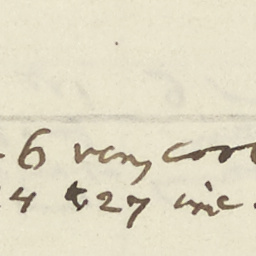 6 very coo
4 to 27 inc.